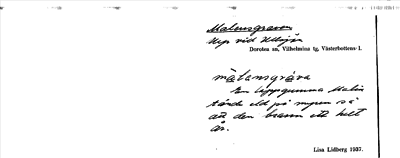 Malensgraven
Myr vid Ullsjön
Dorotea sn, Vilhelmina tg, Västerbottens l.
mālənsgrāva
En lappgumma Malin
tände eld på myren så
att den brann ett helt
år.
Lisa Lidberg 1937.